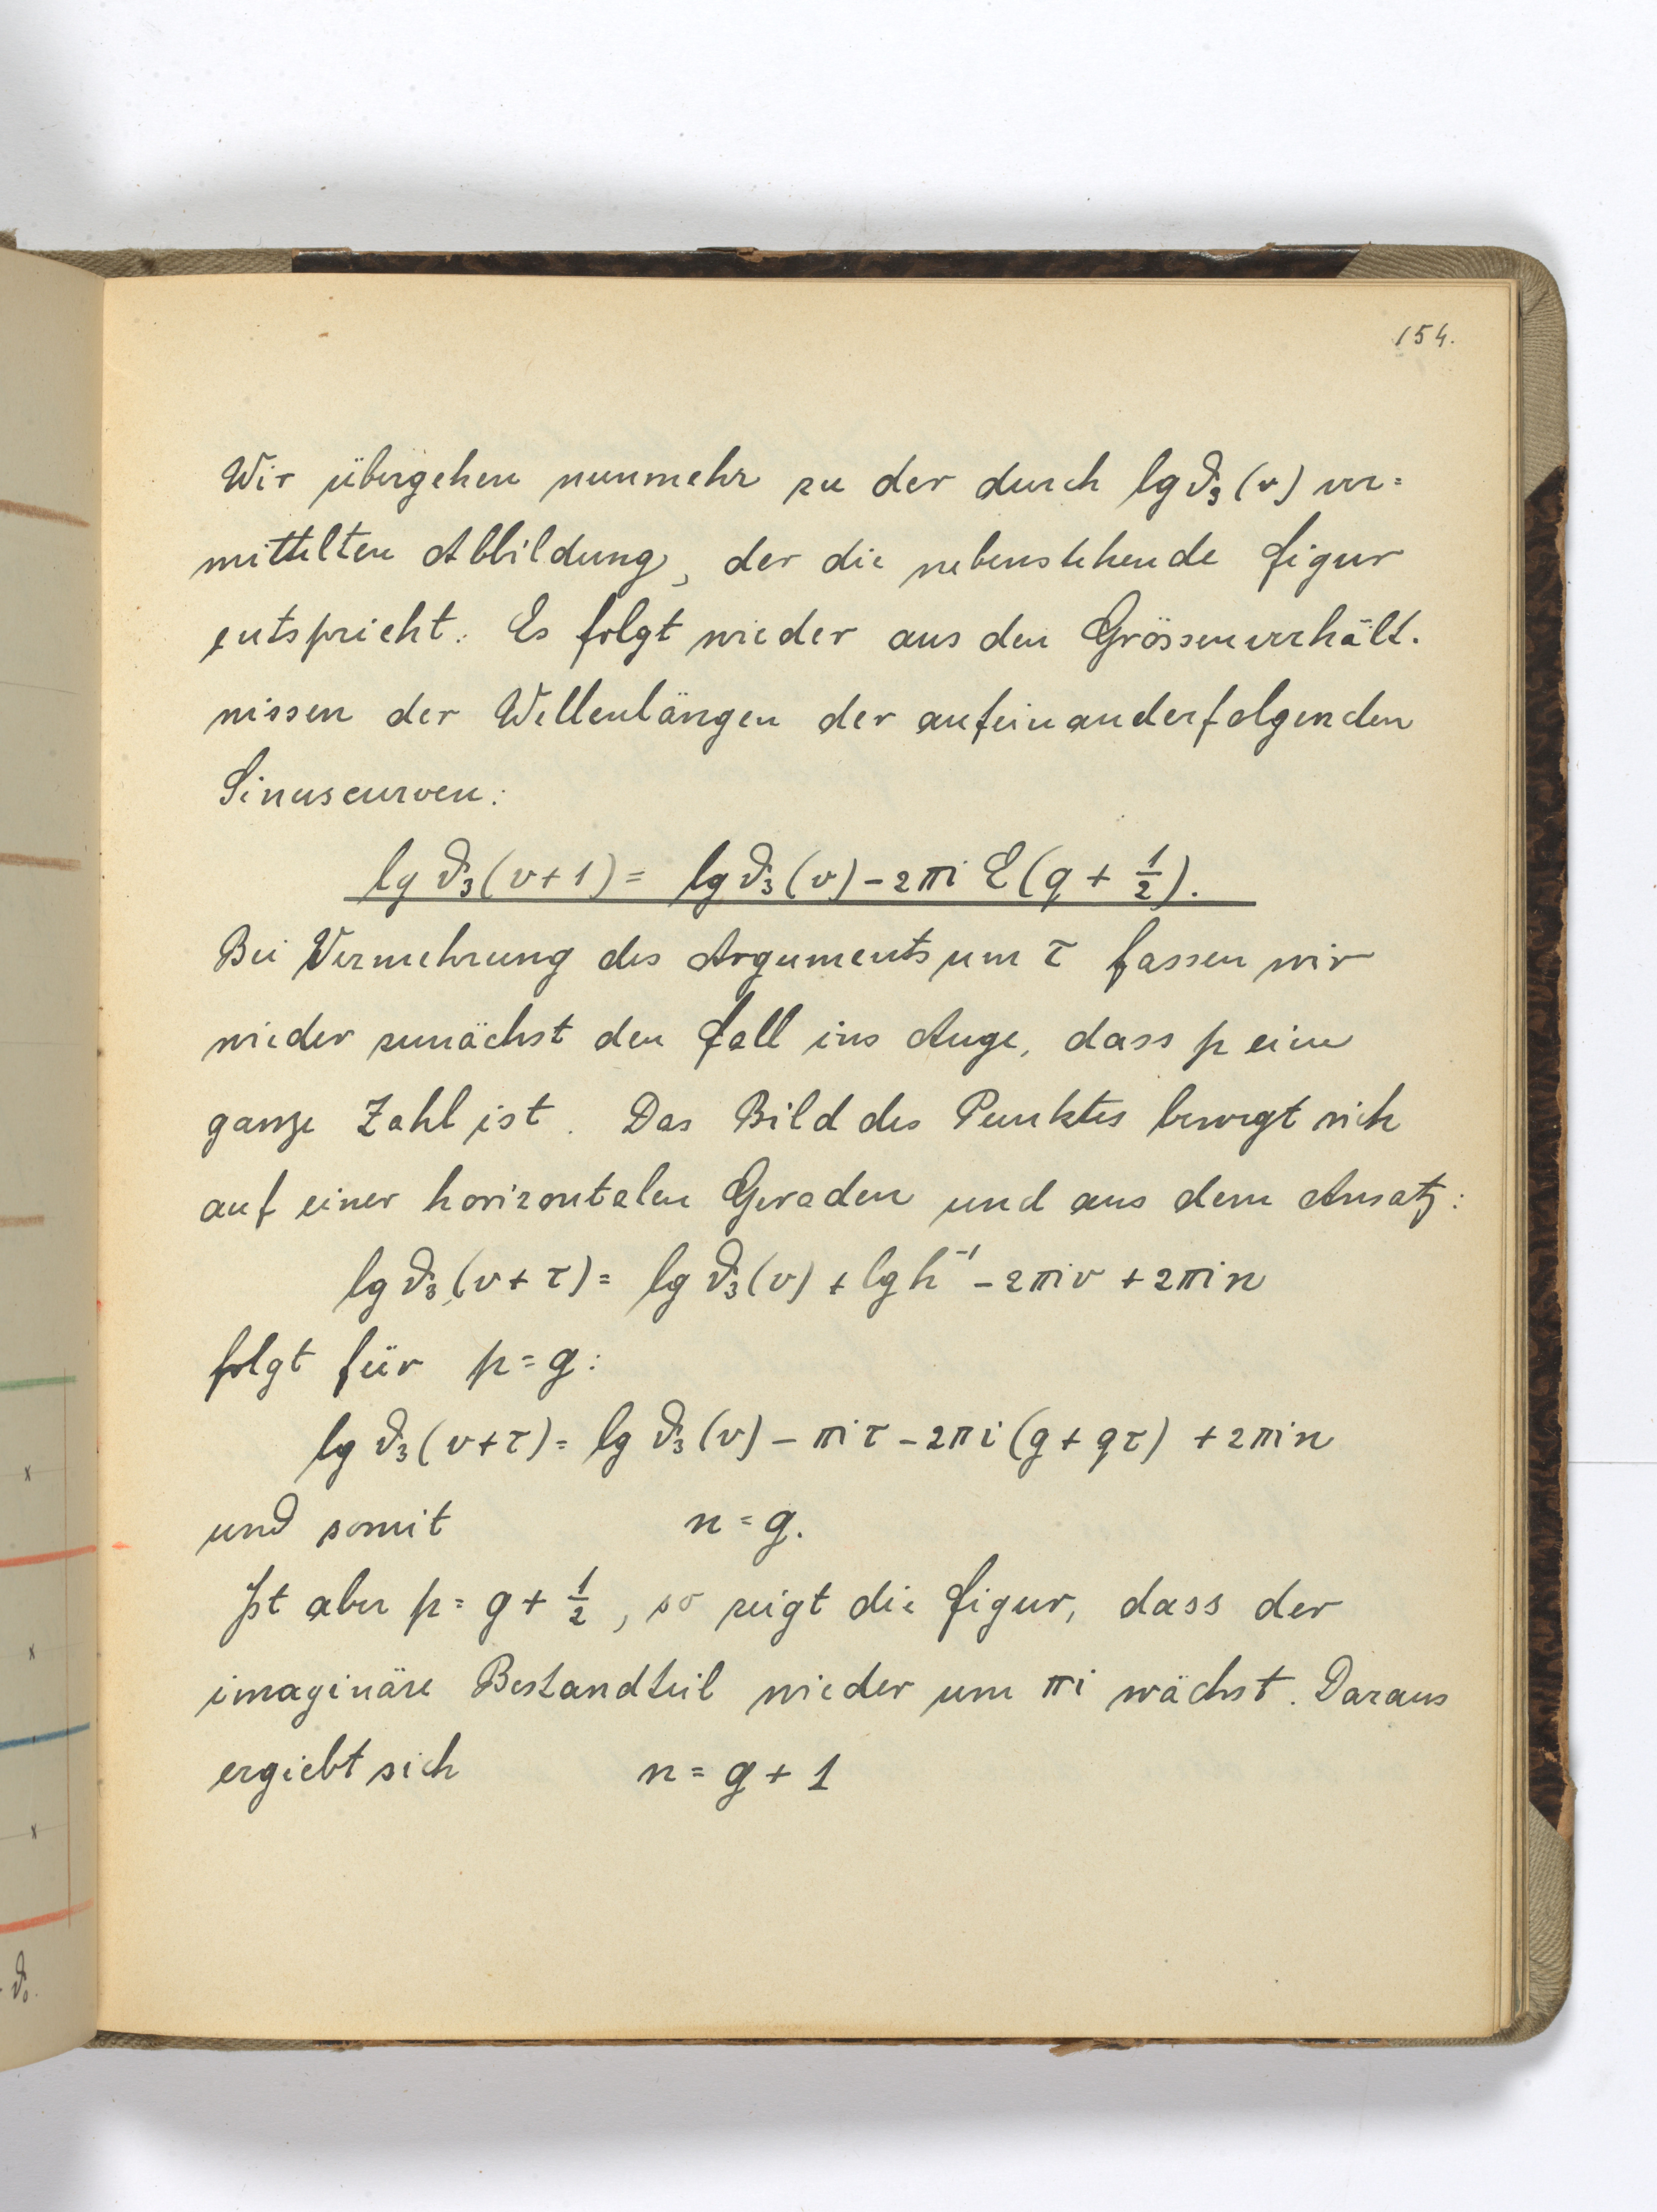 154.
Wir übergehen nunmehr zu der durch lg ϑ₃(v) ver=
mittelten Abbildung, der die nebenstehende Figur
entspricht. Es folgt wieder aus den Grössenverhält-
nissen der Wellenlängen der aufeinanderfolgenden
Sinuscurven:
lg ϑ₃(v+1) = lg ϑ₃(v) – 2πi E(q + 1/2).
Bei Vermehrung des Arguments um τ fassen wir
wieder zunächst den Fall ins Auge, dass p eine
ganze Zahl ist. Das Bild des Punktes bewegt sich
auf einer horizontalen Geraden und aus dem Ansatz:
lg ϑ₃(v+τ) = lg ϑ₃(v) + lg h⁻¹ – 2πiv + 2πin
folgt für p = g:
lg ϑ₃(v+τ) = lg ϑ₃(v) – πiτ – 2πi(g + qτ) + 2πin
und somit n = g.
Ist aber p = g + 1/2, so zeigt die Figur, dass der
imaginäre Bestandteil wieder um πi wächst. Daraus
ergiebt sich n = g + 1
x
x
x
ϑ₀.